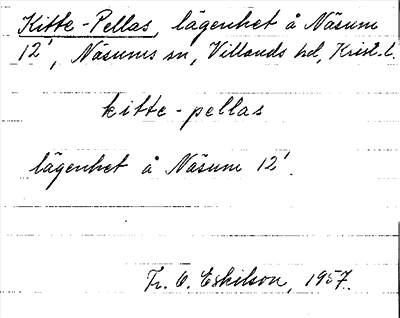 Kitte-Pellas, lägenhet å Näsum
12¹, Näsums sn, Villands hd, Krist. l.
kitte-pellas
lägenhet å Näsum 12¹.
Fr. O. Eskilson, 1957.